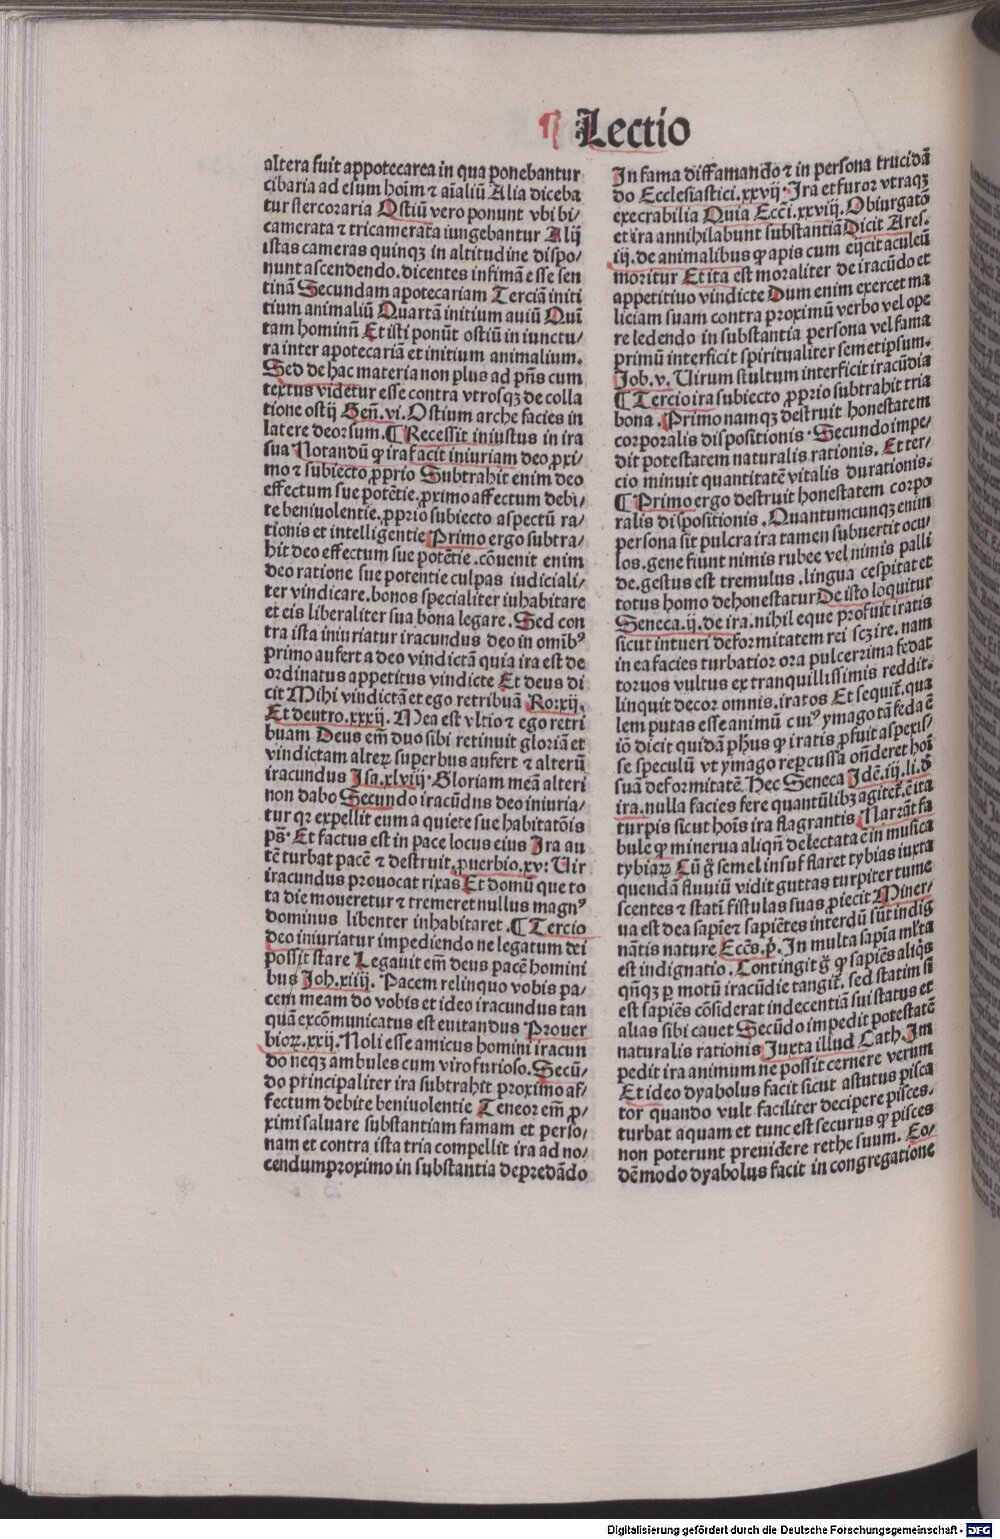 ¶ Lectio
altera fuit appotecarea in qua ponebantur
cibaria ad esum hoim̄ ⁊ aīaliū Alia diceba
tur stercoraria Ostiū vero ponunt vbi bi/
camerata ⁊ tricamerata iungebantur Alij
istas cameras quinqꝫ in altitudine dispo/
nunt ascendendo. dicentes infimā esse sen
tinā Secundam apotecariam Terciā initi
tium animaliū Quartā initium auiū Quī
tam hominū Et isti ponūt ostiū in iunctu/
ra inter apotecariā et initium animalium.
Sed de hac materia non plus ad pn̄s cum
textus videtur esse contra vtrosqꝫ de colla
tione ostij Gen̄. vi. Ostium arche facies in
latere deorsum. ¶ Recessit iniustus in ira
sua Notandū ꝙ ira facit iniuriam deo ꝓxi/
mo ⁊ subiecto ꝓprio Subtrahit enim deo
effectum sue potētie. ꝓximo affectum debi/
te beniuolentie. ꝓprio subiecto aspectū ra/
tionis et intelligentie Primo ergo subtra/
hit deo effectum sue potētie. cōuenit enim
deo ratione sue potentie culpas iudiciali/
ter vindicare. bonos specialiter iuhabitare
et eis liberaliter sua bona legare. Sed con
tra ista iniuriatur iracundus deo in omibꝰ
primo aufert a deo vindictā quia ira est de
ordinatus appetitus vindicte Et deus di
cit Mihi vindictā et ego retribuā Ro. xij.
Et deutro. xxxij. Mea est vltio ⁊ ego retri
buam Deus em̄ duo sibi retinuit gloriā et
vindictam alterꝫ superbus aufert ⁊ alterū
iracundus Isa. xlviij. Gloriam meā alteri
non dabo Secundo iracūdus deo iniuria/
tur qꝛ expellit eum a quiete sue habitatōis
ps̄. Et factus est in pace locus eius Ira au
tē turbat pacē ⁊ destruit. ꝓuerbio. xv. Uir
iracundus prouocat rixas Et domū que to
ta die moueretur ⁊ tremeret nullus magnꝰ
dominus libenter inhabitaret. ¶ Tercio
deo iniuriatur impediendo ne legatum dei
possit stare Legauit em̄ deus pacē homini
bus Joh. xiiij. Pacem relinquo vobis pa/
cem meam do vobis et ideo iracundus tan
quā excōmunicatus est euitandus Prouer
bioꝝ. xxij. Noli esse amicus homini iracun
do neqꝫ ambules cum viro furioso. Secū/
do principaliter ira subtrahit proximo af/
fectum debite beniuolentie Teneor em̄ ꝓ/
ximi saluare substantiam famam et perso/
nam et contra ista tria compellit ira ad no/
cendum proximo in substantia depredādo
In fama diffamando ⁊ in persona trucidā
do Ecclesiastici. xxvij. Ira et furor vtraqꝫ
execrabilia Quia Ecci. xxviij. Obiurgatō
et ira annihilabunt substantiā Dicit Ares.
iij. de animalibus ꝙ apis cum eijcit aculeū
moritur Et ita est moraliter de iracūdo et
appetitiuo vindicte Dum enim exercet ma
liciam suam contra proximū verbo vel ope
re ledendo in substantia persona vel fama
primū interficit spiritualiter semetipsum.
Job. v. Uirum stultum interficit iracūdia
¶ Tercio ira subiecto ꝓprio subtrahit tria
bona. Primo namqꝫ destruit honestatem
corporalis dispositionis. Secundo impe/
dit potestatem naturalis rationis. Et ter/
cio minuit quantitatē vitalis durationis.
¶ Primo ergo destruit honestatem corpo
ralis dispositionis. Quantumcunqꝫ enim
persona sit pulcra ira tamen subuertit ocu/
los. gene fiunt nimis rubee vel nimis palli
de. gestus est tremulus. lingua cespitat et
totus homo dehonestatur De isto loquitur
Seneca. ij. de ira. nihil eque profuit iratis
sicut intueri deformitatem rei scꝫ ire. nam
in ea facies turbatior ora pulcerrima fedat
toruos vultus ex tranquillissimis reddit.
linquit decor omnis. iratos Et sequit̄. qua
lem putas esse animū cuiꝰ ymago tā feda ē
iō dicit quidā ph̄us ꝙ iratis ꝓfuit aspexis/
se speculū vt ymago reꝑcussa ond̄eret hoī
suā deformitatē. Hec Seneca Idē. iij. li. d̄
ira. nulla facies fere quantūlibꝫ agitet̄. ē ita
turpis sicut hoīs ira flagrantis Narrāt fa
bule ꝙ minerua aliqn̄ delectata ē in musica
tybiaꝝ Cū g̊ semel insufflaret tybias iuxta
quendā fluuiū vidit guttas turpiter tume
scentes ⁊ statī fistulas suas ꝓiecit Miner/
ua est dea sapiē⁊ sapiētes interdū sūt indig
nātis nature Eccēs. p̊. In multa sapīa ml̄ta
est indignatio. Contingit g̊ ꝙ sapiēs aliqꝰ
qn̄qꝫ ꝑ motū iracūdie tangit̄. sed statim si
est sapiēs cōsiderat indecentiā sui status et
alias sibi cauet Secūdo impedit potestatē
naturalis rationis Juxta illud Cath. Im
pedit ira animum ne possit cernere verum
Et ideo dyabolus facit sicut astutus pisca
tor quando vult faciliter decipere pisces.
turbat aquam et tunc est securus ꝙ pisces
non poterunt preuidere rethe suum. Eo/
dē modo dyabolus facit in congregatione
Digitalisierung gefördert durch die Deutsche Forschungsgemeinschaft - DFG